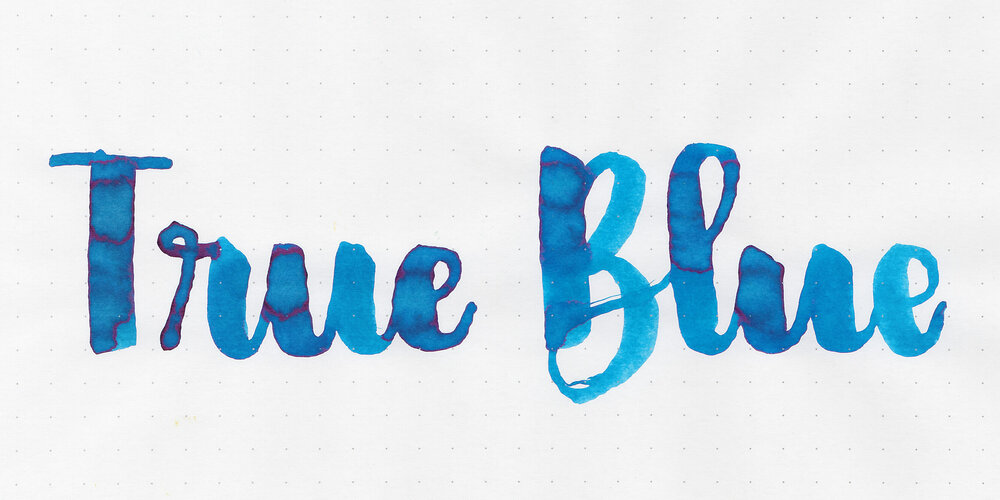 True Blue